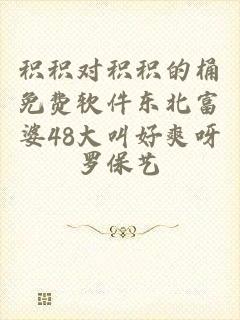 积积对积积的桶
免费软件东北富
婆48大叫好爽呀
罗保艺